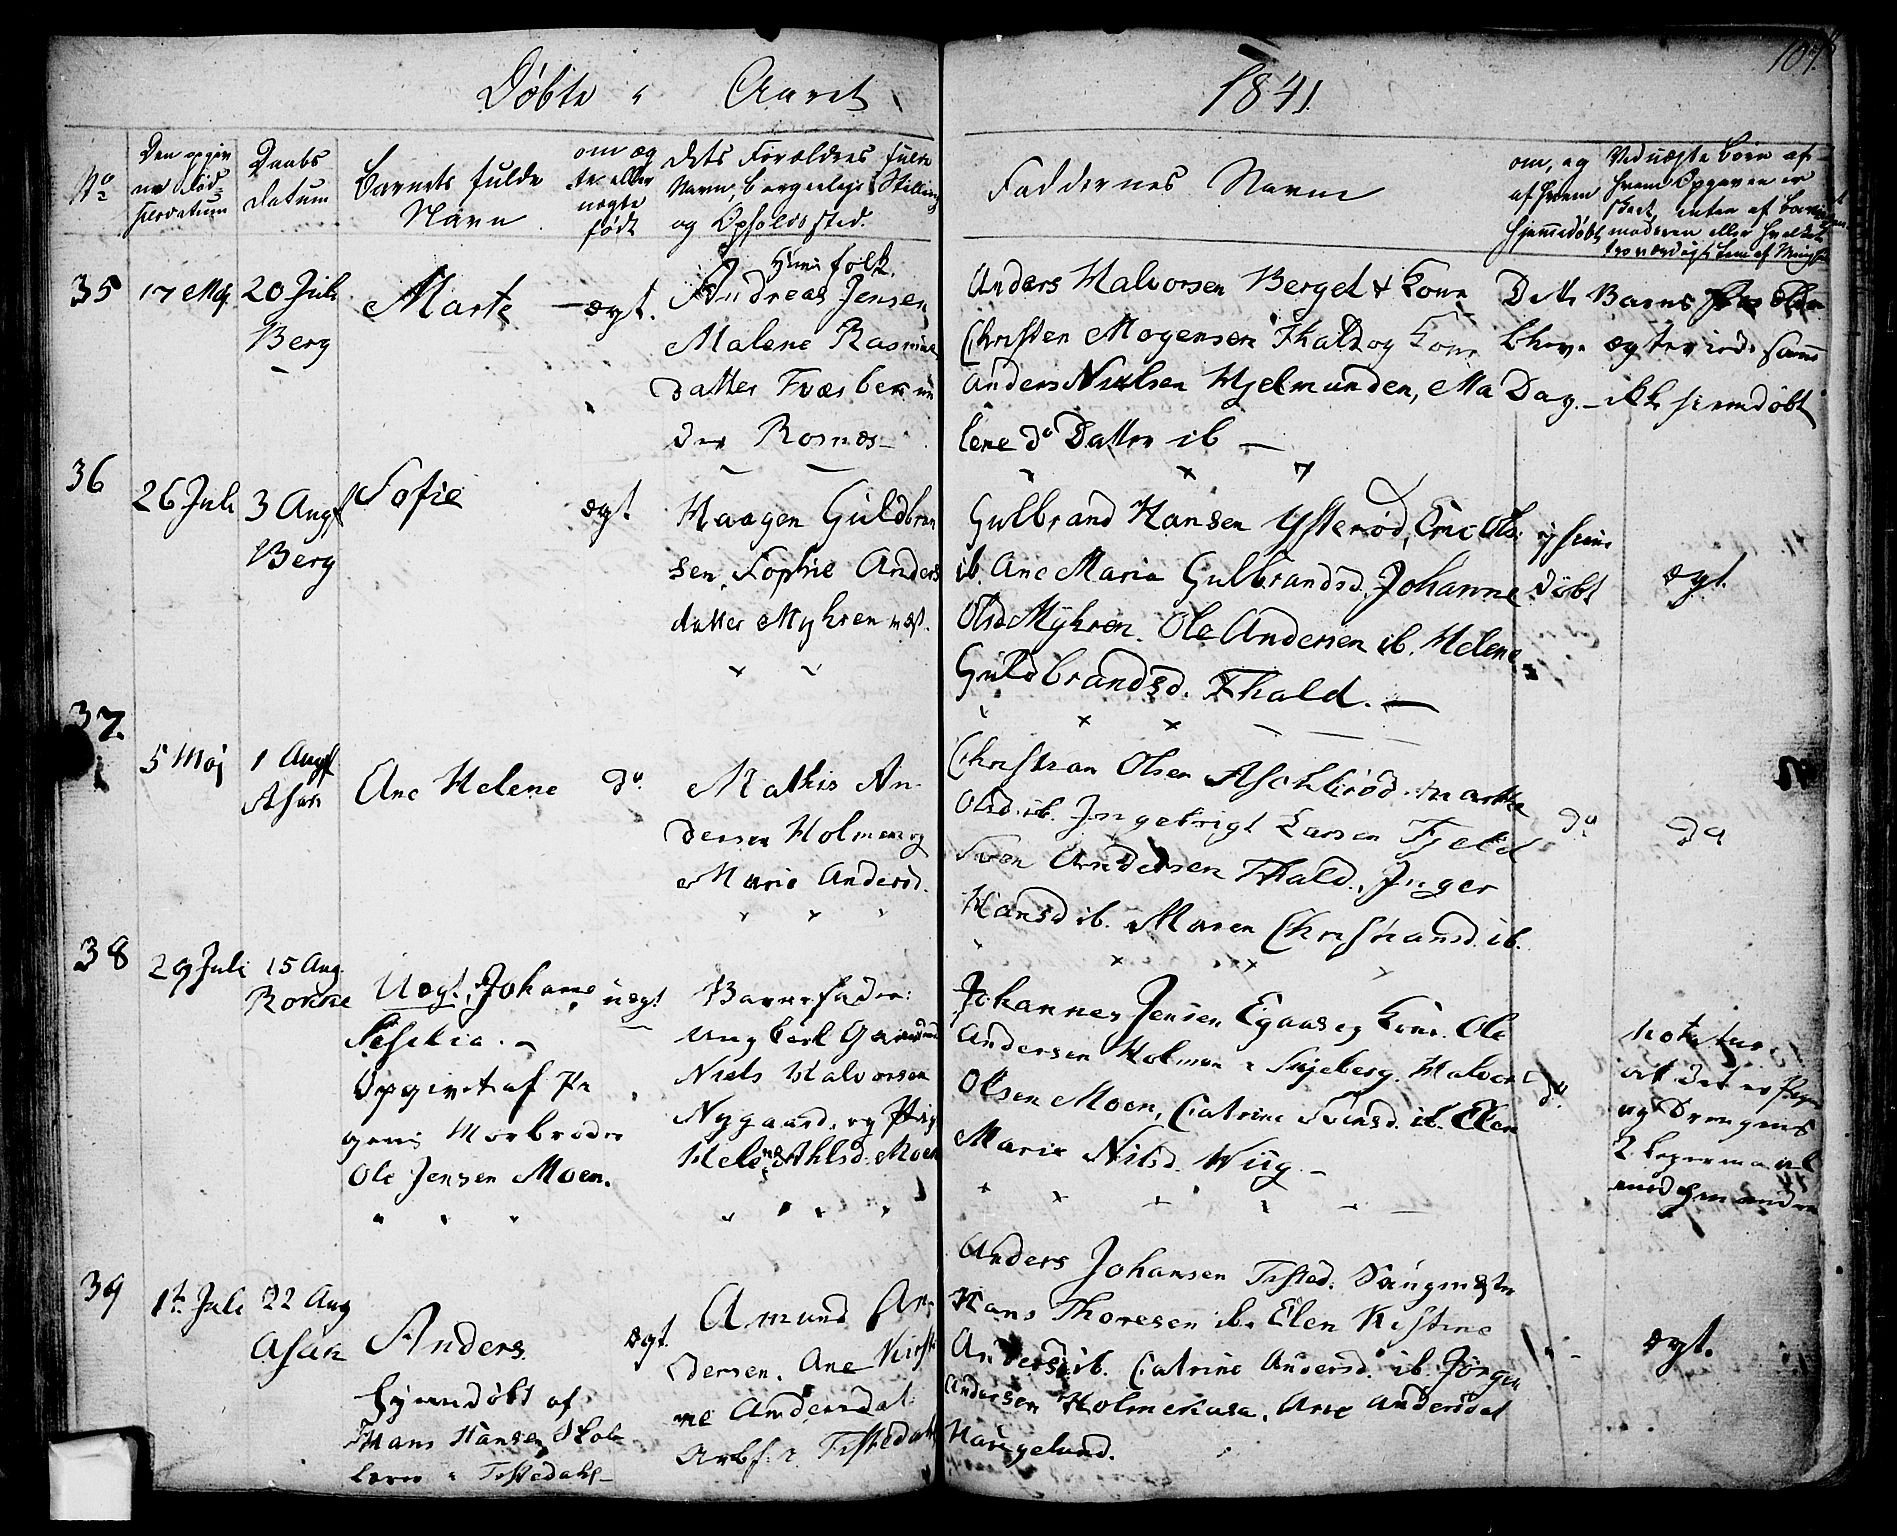 107
Døbte i Aaret 1841.
No
Den opgivne Fødselsdatum
Daabs Datum
Barnets fulde Navn
om ægte eller uægte født
dets Forældres fulde Navn, borgerlige Stilling og Opholdssted.
Faddernes Navne
om, og af hvem hjemmedøbt
Ved uægte Børn af hvem Opgaven er skeet, enten af
35
17 Maj
20 Juli
Berg
Marte
ægt.
Huusfolk.
Andreas Jensen
Malene Rasmus
datter
Anders Halvorsen Berget & Kone
Christen Mogensen Thald og Kone
Anders Nielsen Hjelmunden, Ma
lene do Datter ib
Dette Barns Forældre
bleve ægteviede samme
Dag. ikke hjemdøbt
36
26 Juli
3 Augst
Berg
Sofie
ægt
Haagen Guldbran
sen, Sophie Anders
datter Myhren
Gulbrand Hansen Ysterød,
ib. Ane Maria Gulbrandsd. Johanne
Olsd Myhren. Ole Andersen ib. Helene
Guldbrandsd. Thald.
ej hiem
døbt
ægt.
37.
5 Maj
1 Augst
Asak
Ane Helene
do
Mathis An
dersen Holmen og
Marie Andersd.
Christian Olsen Marthe
Olsd. ib. Ingebrigt Larsen Fjeld
Sven Andersen Thald, Inger
Hansd ib. Maren Christiansd. ib.
do
do
38
29 Juli
15 Aug.
Rokke
Uægt. Johanne
uægt
Opgivet af Pi
gens Morbroder
Ole Jensen Moen.
Barnefader:
Ungkarl
Niels Halvorsen
Nygaard, og Pige
Helene Moen
Johannes Jensen og Kone. Ole
Andersen Holmen i Skjeberg. Halvor
Olsen Moen, Catrine Svensd. ib. Elen
Marie Nilsd. Wiig.
do.
Notatur
at det er Pigens
og Drengens
2. Leiermaal
med hinanden
39
1te Juli
22 Aug
Asak
Anders
Hjemdøbt af
Hans Hansen Skole
lærer i Tistedahl
ægt.
Amund An
dersen. Ane Kirsti
ne Andersdat.
Arbf. i Tistedahl
Anders Johansen Tisted.
Hans Thoresen ib. Elen Kistine
Andersd. ib. Catrine Andersd. ib. Jörgen
Andersen Holmekasa, Ane Andersdat
Haugelund.
ægt.